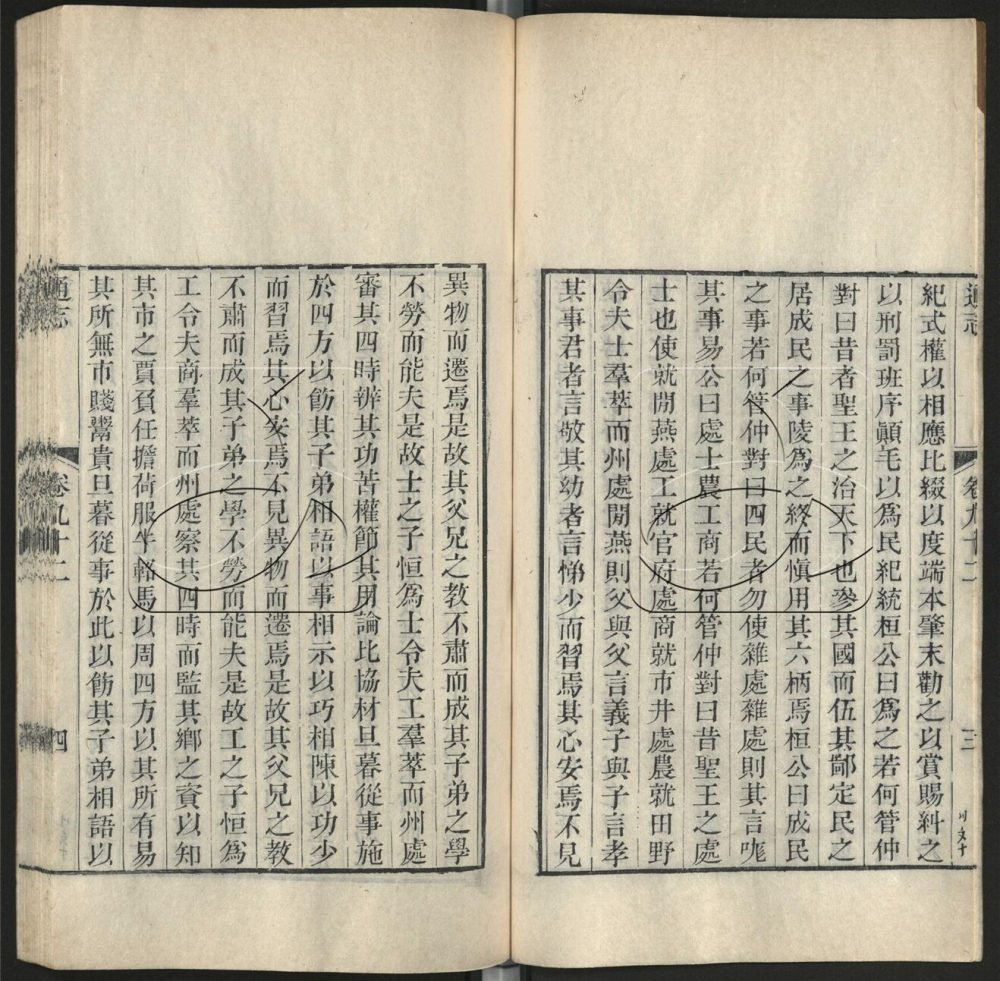 通志
卷九十二
三
紀式權以相應比綴以度端本肇末勸之以賞賜糾之
以刑罰班序顚毛以爲民紀統桓公曰爲之若何管仲
對曰昔者聖王之治天下也參其國而伍其鄙定民之
居成民之事陵爲之終而愼用其六柄焉桓公曰成民
之事若何管仲對曰四民者勿使雜處雜處則其言哤
其事易公曰處士農工商若何管仲對曰昔聖王之處
士也使就閒燕處工就官府處商就市井處農就田野
令夫士羣萃而州處閒燕則父與父言義子與子言孝
其事君者言敬其幼者言悌少而習焉其心安焉不見
異物而遷焉是故其父兄之教不肅而成其子弟之學
不勞而能夫是故士之子恒爲士令夫工羣萃而州處
審其四時辨其功苦權節其用論比協材旦暮從事施
於四方以飭其子弟相語以事相示以巧相陳以功少
而習焉其心安焉不見異物而遷焉是故其父兄之教
不肅而成其子弟之學不勞而能夫是故工之子恒爲
工令夫商羣萃而州處察其四時而監其鄉之資以知
其市之賈負任擔荷服牛軺馬以周四方以其所有易
其所無市賤鬻貴旦暮從事於此以飭其子弟相語以
通志
卷九十二
四